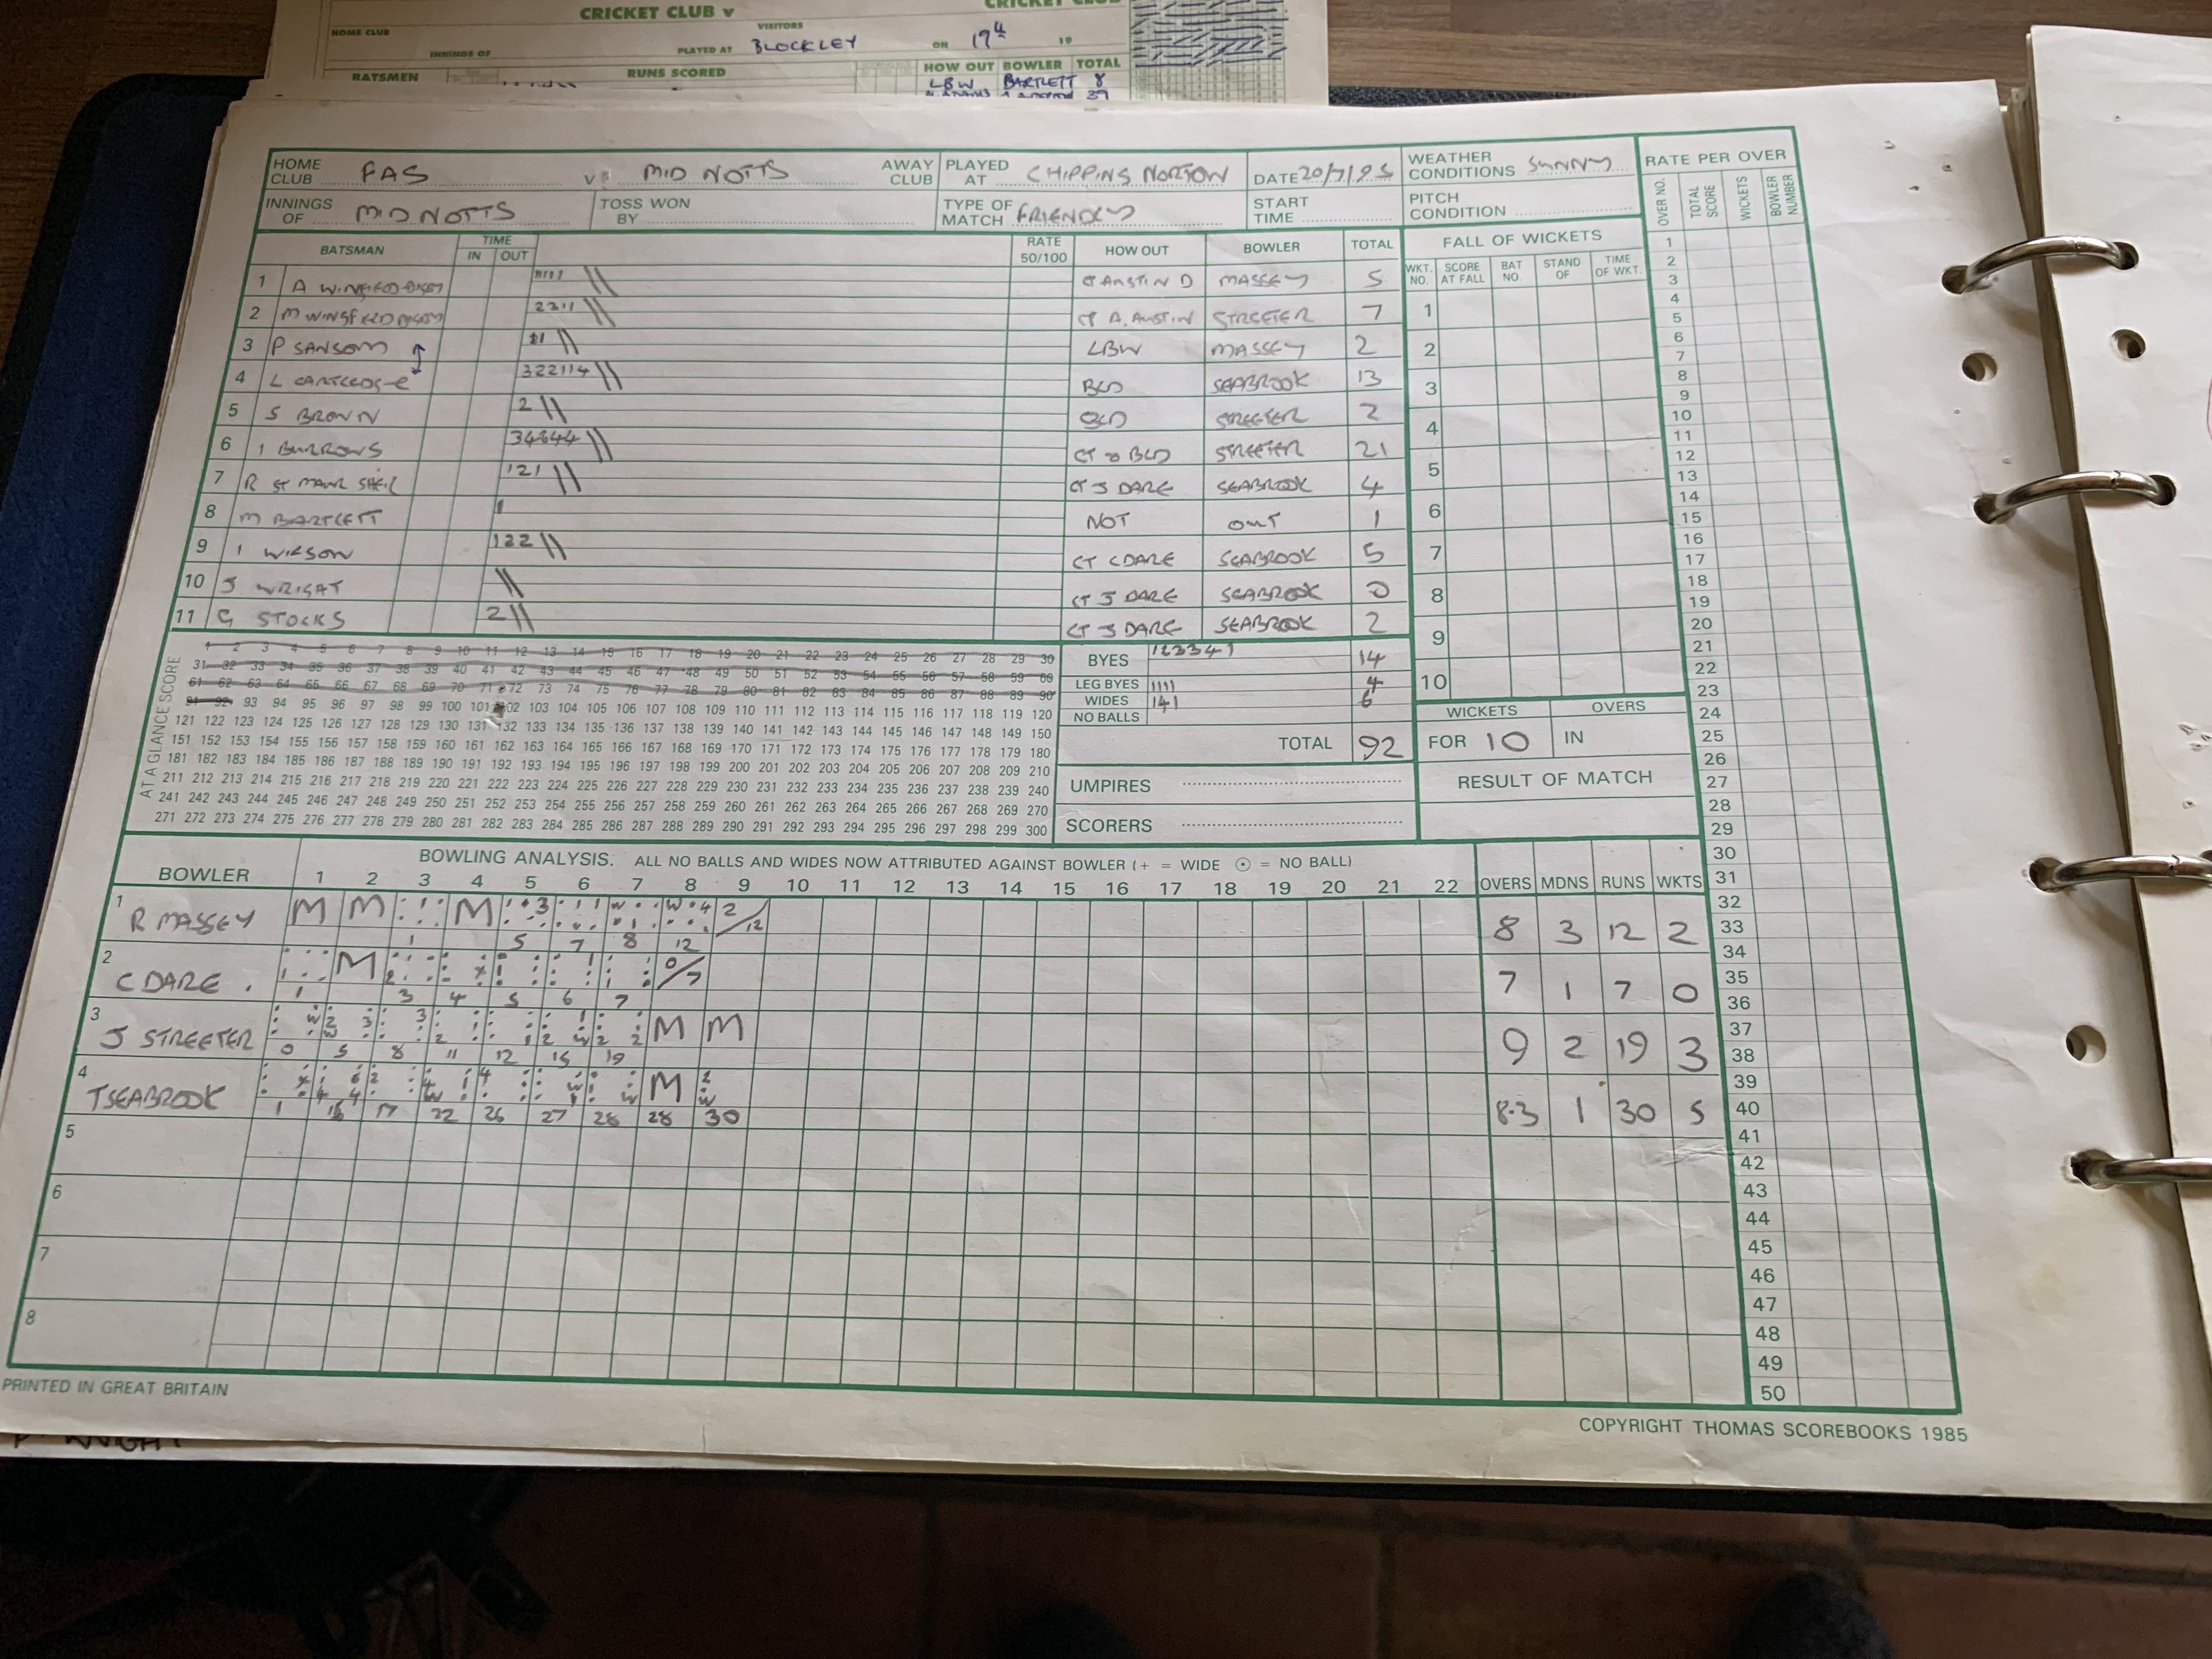 CRICKET CLUB v
CRICKET CLUB
HOME CLUB
VISITORS
INNINGS OF
PLAYED AT BLOCKLEY ON 17th 19
BATSMEN RUNS SCORED HOW OUT BOWLER TOTAL
LBW BARTLETT 8
HOME CLUB FAS V MID NOTTS AWAY CLUB PLAYED AT CHIPPING NORTON DATE 20/7/95 WEATHER CONDITIONS SUNNY RATE PER OVER
INNINGS OF MID NOTTS TOSS WON BY TYPE OF MATCH FRIENDLY START TIME PITCH CONDITION
OVER NO. TOTAL SCORE WICKETS BOWLER NUMBER
BATSMAN TIME IN OUT RATE 50/100 HOW OUT BOWLER TOTAL FALL OF WICKETS
WKT. NO. SCORE AT FALL BAT NO. STAND OF TIME OF WKT.
1 A WINGFIELD DIGBY 11111 \\ CT AUSTIN D MASSEY 5
2 M WINGFIELD DIGBY 2311 \\ CT A. AUSTIN STREETER 7
3 P SANSOM 11 \\ LBW MASSEY 2
4 L CARTLEDGE 322114 \\ BLD SEABROOK 13
5 S BROWN 2 \\ BLD STREETER 2
6 I BURROWS 34644 \\ CT & BLD STREETER 21
7 R ST MAWR SHEIL 121 \\ CT J DARE SEABROOK 4
8 M BARTLETT 1 NOT OUT 1
9 I WILSON 122 \\ CT C DARE SEABROOK 5
10 J WRIGHT \\ CT J DARE SEABROOK 0
11 G STOCKS 2 \\ CT J DARE SEABROOK 2
1
2
3
4
5
6
7
8
9
10
AT A GLANCE SCORE
1 2 3 4 5 6 7 8 9 10 11 12 13 14 15 16 17 18 19 20 21 22 23 24 25 26 27 28 29 30
31 32 33 34 35 36 37 38 39 40 41 42 43 44 45 46 47 48 49 50 51 52 53 54 55 56 57 58 59 60
61 62 63 64 65 66 67 68 69 70 71 72 73 74 75 76 77 78 79 80 81 82 83 84 85 86 87 88 89 90
91 92 93 94 95 96 97 98 99 100 101 102 103 104 105 106 107 108 109 110 111 112 113 114 115 116 117 118 119 120
121 122 123 124 125 126 127 128 129 130 131 132 133 134 135 136 137 138 139 140 141 142 143 144 145 146 147 148 149 150
151 152 153 154 155 156 157 158 159 160 161 162 163 164 165 166 167 168 169 170 171 172 173 174 175 176 177 178 179 180
181 182 183 184 185 186 187 188 189 190 191 192 193 194 195 196 197 198 199 200 201 202 203 204 205 206 207 208 209 210
211 212 213 214 215 216 217 218 219 220 221 222 223 224 225 226 227 228 229 230 231 232 233 234 235 236 237 238 239 240
241 242 243 244 245 246 247 248 249 250 251 252 253 254 255 256 257 258 259 260 261 262 263 264 265 266 267 268 269 270
271 272 273 274 275 276 277 278 279 280 281 282 283 284 285 286 287 288 289 290 291 292 293 294 295 296 297 298 299 300
BYES 123341 14
LEG BYES 1111 4
WIDES 141 6
NO BALLS
TOTAL 92
WICKETS OVERS
FOR 10 IN
UMPIRES
SCORERS
RESULT OF MATCH
BOWLING ANALYSIS. ALL NO BALLS AND WIDES NOW ATTRIBUTED AGAINST BOWLER (+ = WIDE ⊙ = NO BALL)
BOWLER 1 2 3 4 5 6 7 8 9 10 11 12 13 14 15 16 17 18 19 20 21 22 OVERS MDNS RUNS WKTS
1 R MASSEY M M M 2/12 8 3 12 2
1 5 7 8 12
2 C DARE . M 0/7 7 1 7 0
1 3 4 5 6 7
3 J STREETER M M 9 2 19 3
0 5 8 11 12 15 19
4 T SEABROOK M 8.3 1 30 5
1 15 17 22 26 27 28 28 30
5
6
7
8
1
2
3
4
5
6
7
8
9
10
11
12
13
14
15
16
17
18
19
20
21
22
23
24
25
26
27
28
29
30
31
32
33
34
35
36
37
38
39
40
41
42
43
44
45
46
47
48
49
50
PRINTED IN GREAT BRITAIN
COPYRIGHT THOMAS SCOREBOOKS 1985
P KNIGHT